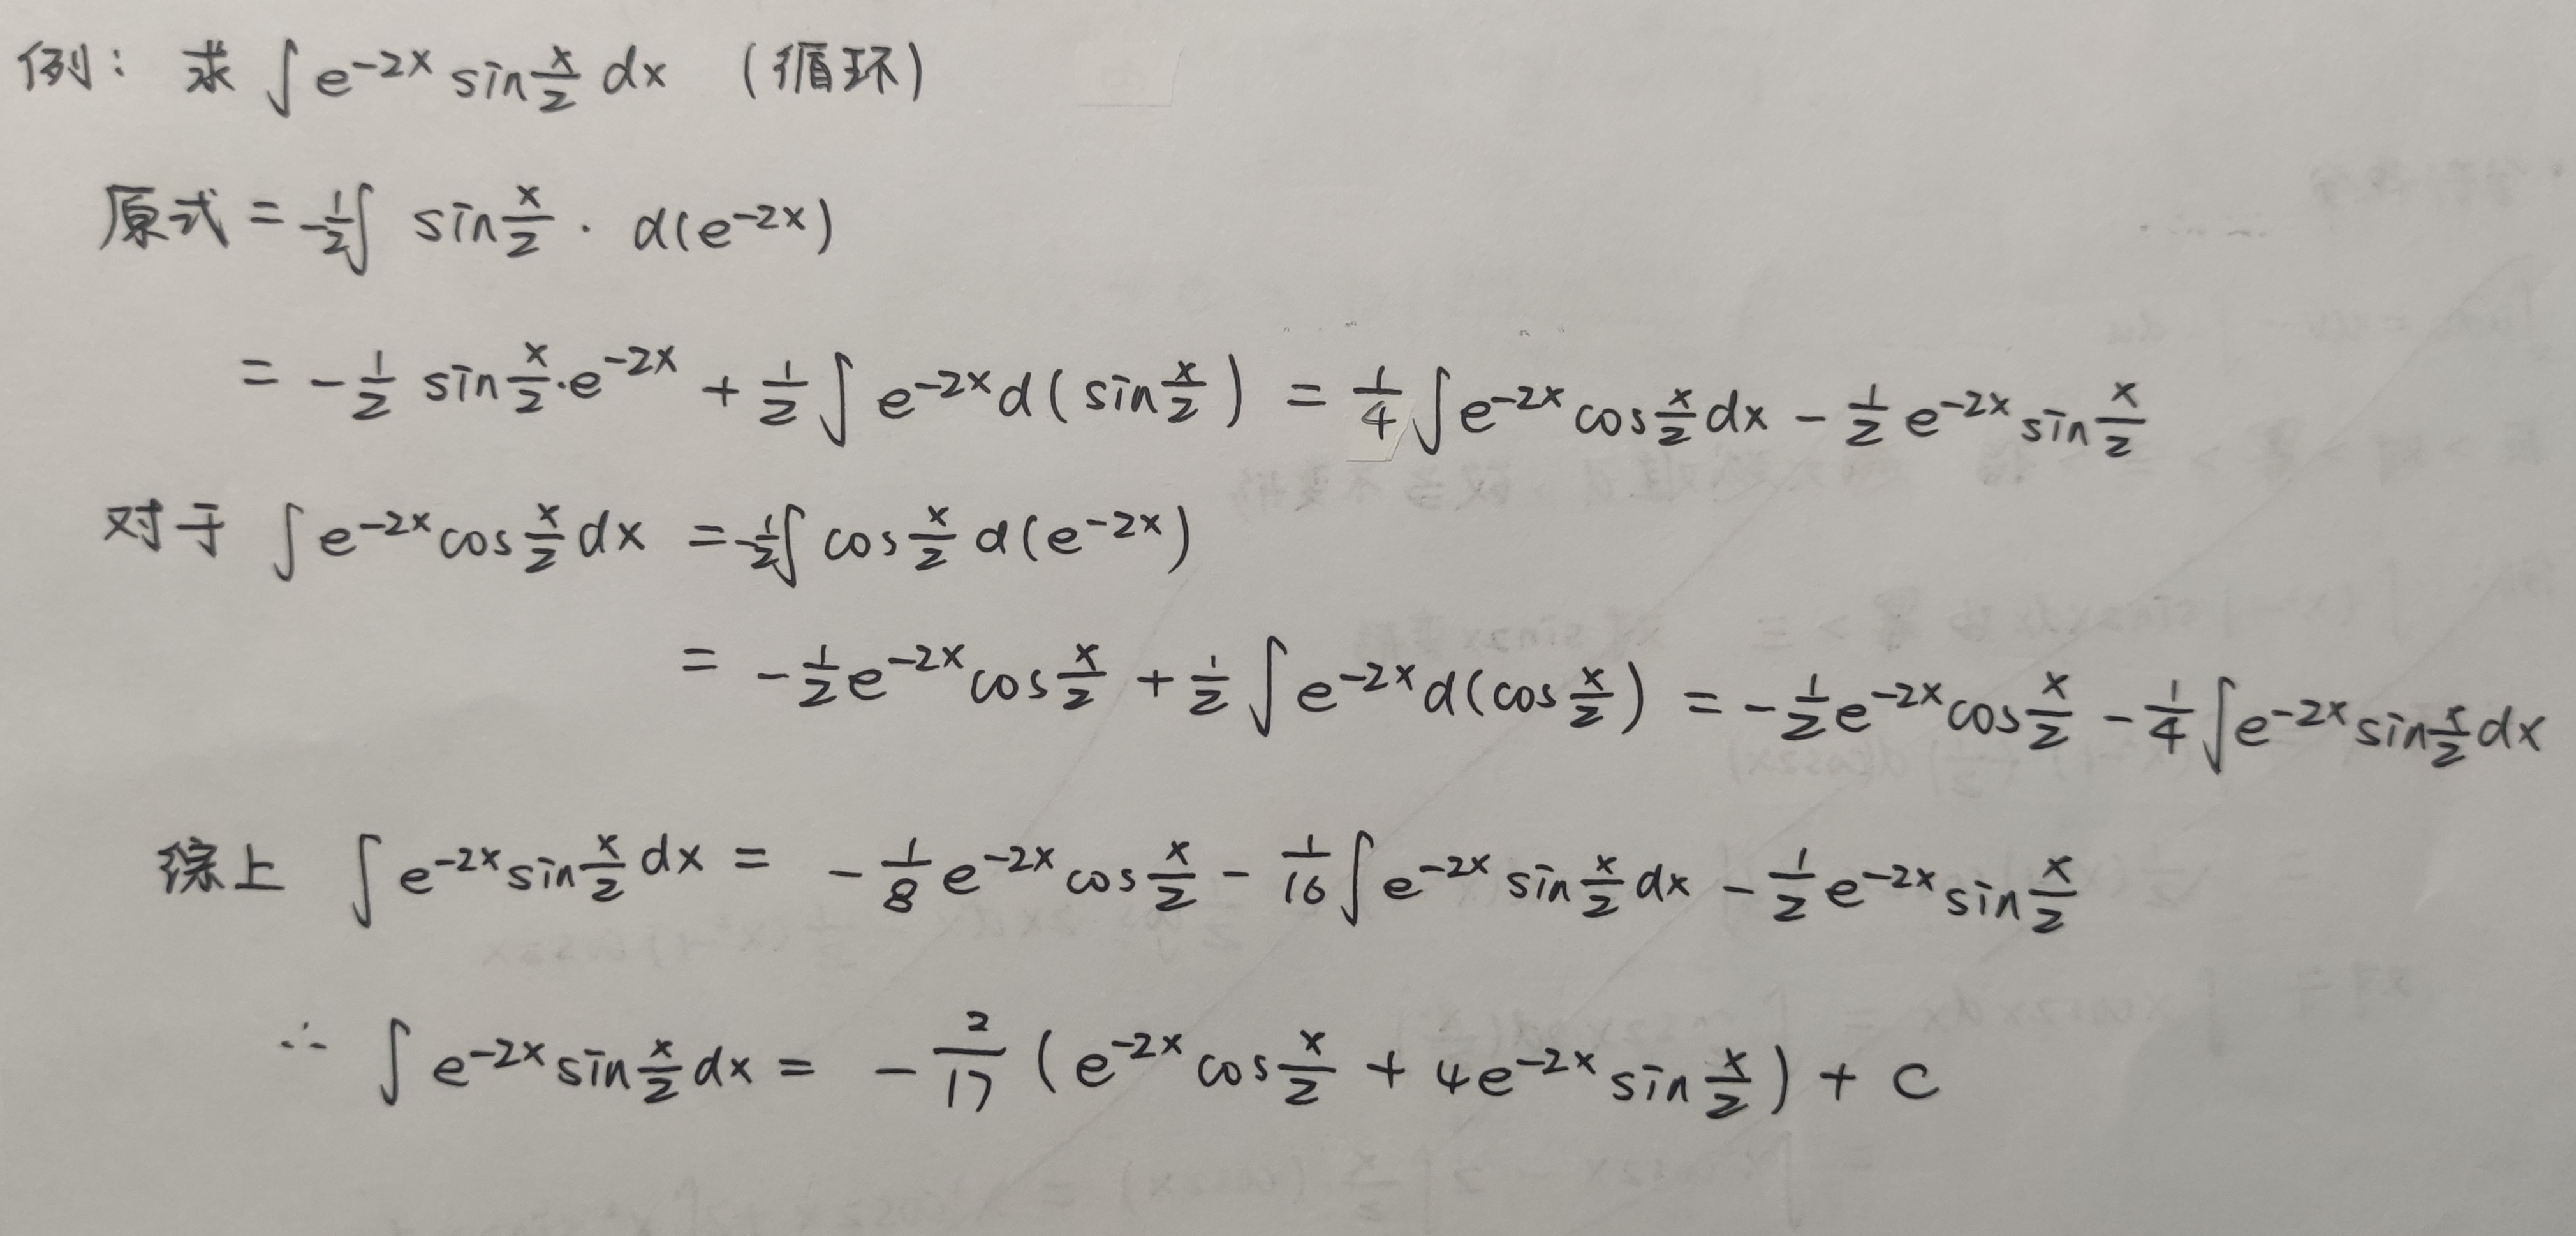 例：求 ∫e^{-2x} sin\frac{x}{2} dx （循环）
原式 = -\frac{1}{2}∫ sin\frac{x}{2} · d(e^{-2x})
= -\frac{1}{2} sin\frac{x}{2}·e^{-2x} + \frac{1}{2}∫e^{-2x}d(sin\frac{x}{2}) = \frac{1}{4}∫e^{-2x}cos\frac{x}{2}dx - \frac{1}{2}e^{-2x}sin\frac{x}{2}
对于 ∫e^{-2x}cos\frac{x}{2}dx = -\frac{1}{2}∫cos\frac{x}{2}d(e^{-2x})
= -\frac{1}{2}e^{-2x}cos\frac{x}{2} + \frac{1}{2}∫e^{-2x}d(cos\frac{x}{2}) = -\frac{1}{2}e^{-2x}cos\frac{x}{2} - \frac{1}{4}∫e^{-2x}sin\frac{x}{2}dx
综上 ∫e^{-2x}sin\frac{x}{2}dx = -\frac{1}{8}e^{-2x}cos\frac{x}{2} - \frac{1}{16}∫e^{-2x}sin\frac{x}{2}dx - \frac{1}{2}e^{-2x}sin\frac{x}{2}
∴ ∫e^{-2x}sin\frac{x}{2}dx = -\frac{2}{17}(e^{-2x}cos\frac{x}{2} + 4e^{-2x}sin\frac{x}{2}) + C